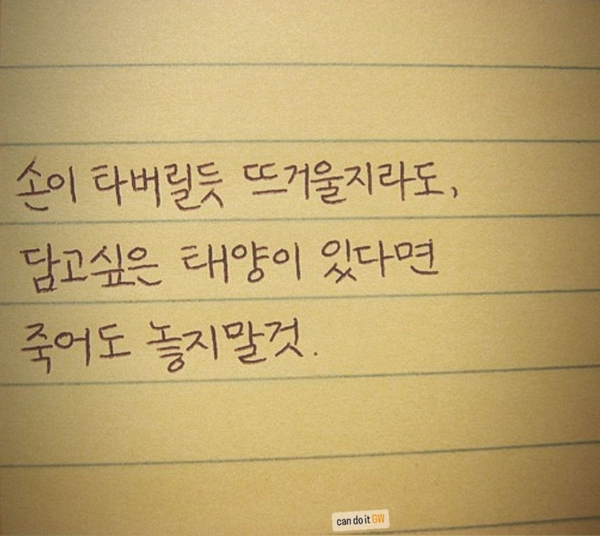 손이 타버릴듯 뜨거울지라도,
담고싶은 태양이 있다면
죽어도 놓지말것.
can do it GW